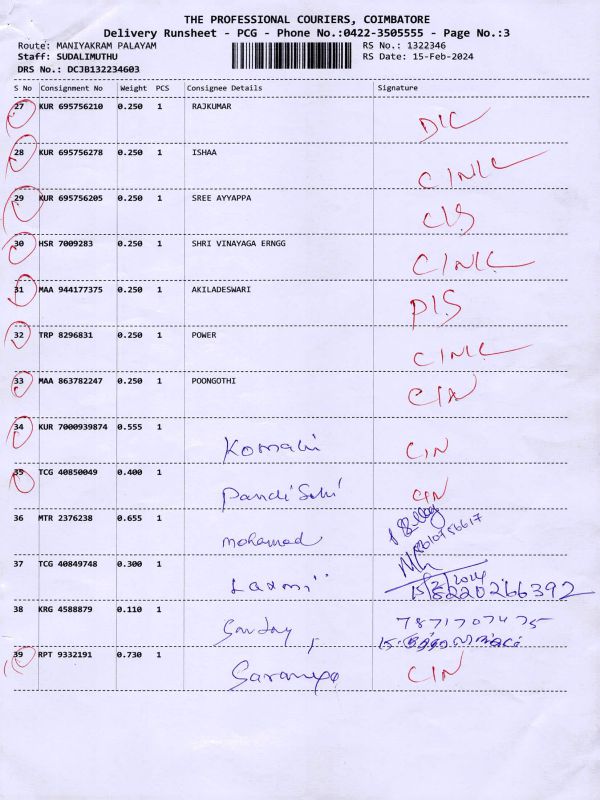 THE PROFESSIONAL COURIERS, COIMBATORE
Delivery Runsheet - PCG - Phone No.:0422-3505555 - Page No.:3
Route: MANIYAKRAM PALAYAM RS No.: 1322346
Staff: SUDALIMUTHU RS Date: 15-Feb-2024
DRS No.: DCJB132234603
S No Consignment No Weight PCS Consignee Details Signature
27 KUR 695756210 0.250 1 RAJKUMAR
28 KUR 695756278 0.250 1 ISHAA
29 KUR 695756205 0.250 1 SREE AYYAPPA
30 HSR 7009283 0.250 1 SHRI VINAYAGA ERNGG
31 MAA 944177375 0.250 1 AKILADESWARI
32 TRP 8296831 0.250 1 POWER
33 MAA 863782247 0.250 1 POONGOTHI
34 KUR 7000939874 0.555 1 CIN
35 TCG 40850049 0.400 1 CIN
36 MTR 2376238 0.655 1 mohamad
37 TCG 40849748 0.300 1 Laxmi 15/2/2024
8220266392
38 KRG 4588879 0.110 1 7871707475
39 RPT 9332191 0.730 1 CIN